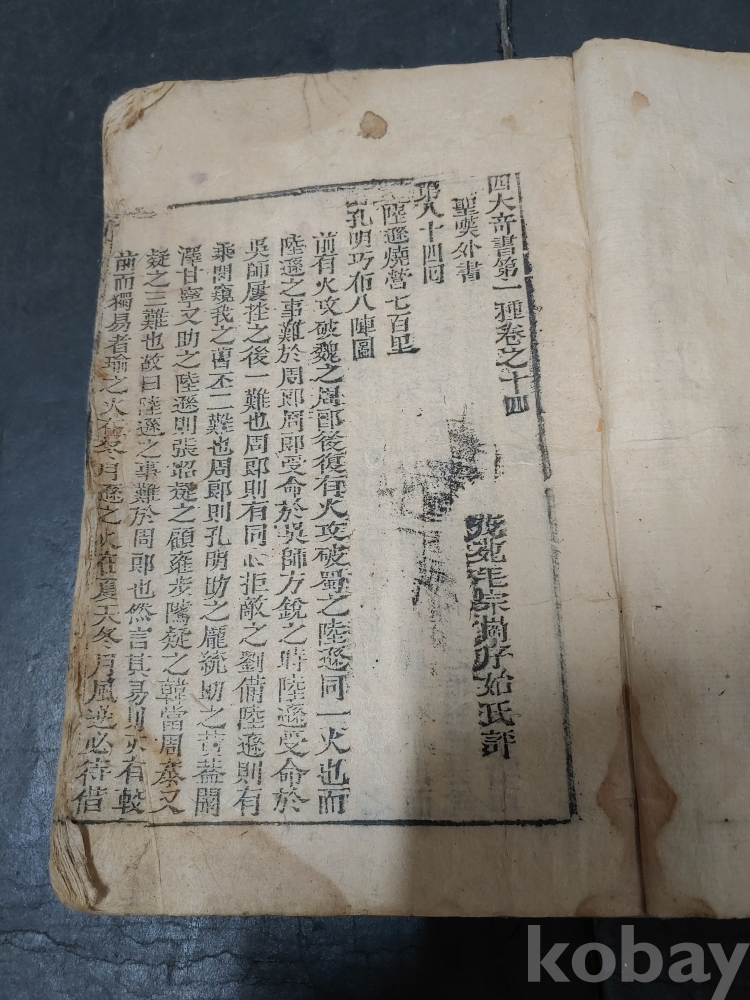 四大奇書第一種卷之十四
聖嘆外書
茂苑毛宗崗序始氏評
第八十四回
陸遜燒營七百里
孔明巧布八陣圖
前有火攻破魏之周郎後復有火攻破蜀之陸遜同一火也而
陸遜之事難於周郎周郎受命於吳師方銳之時陸遜受命於
吳師屢挫之後一難也周郎則有同心拒敵之劉備陸遜則有
乘間窺我之曹丕二難也周郎則孔明助之龐統助之黃蓋闞
澤甘寧又助之陸遜則張昭疑之顧雍步隲疑之韓當周泰又
疑之三難也故曰陸遜之事難於周郎也然言其易則亦有較
前而獨易者瑜之火在冬月遜之火在夏天冬月風逆必待借
kobay